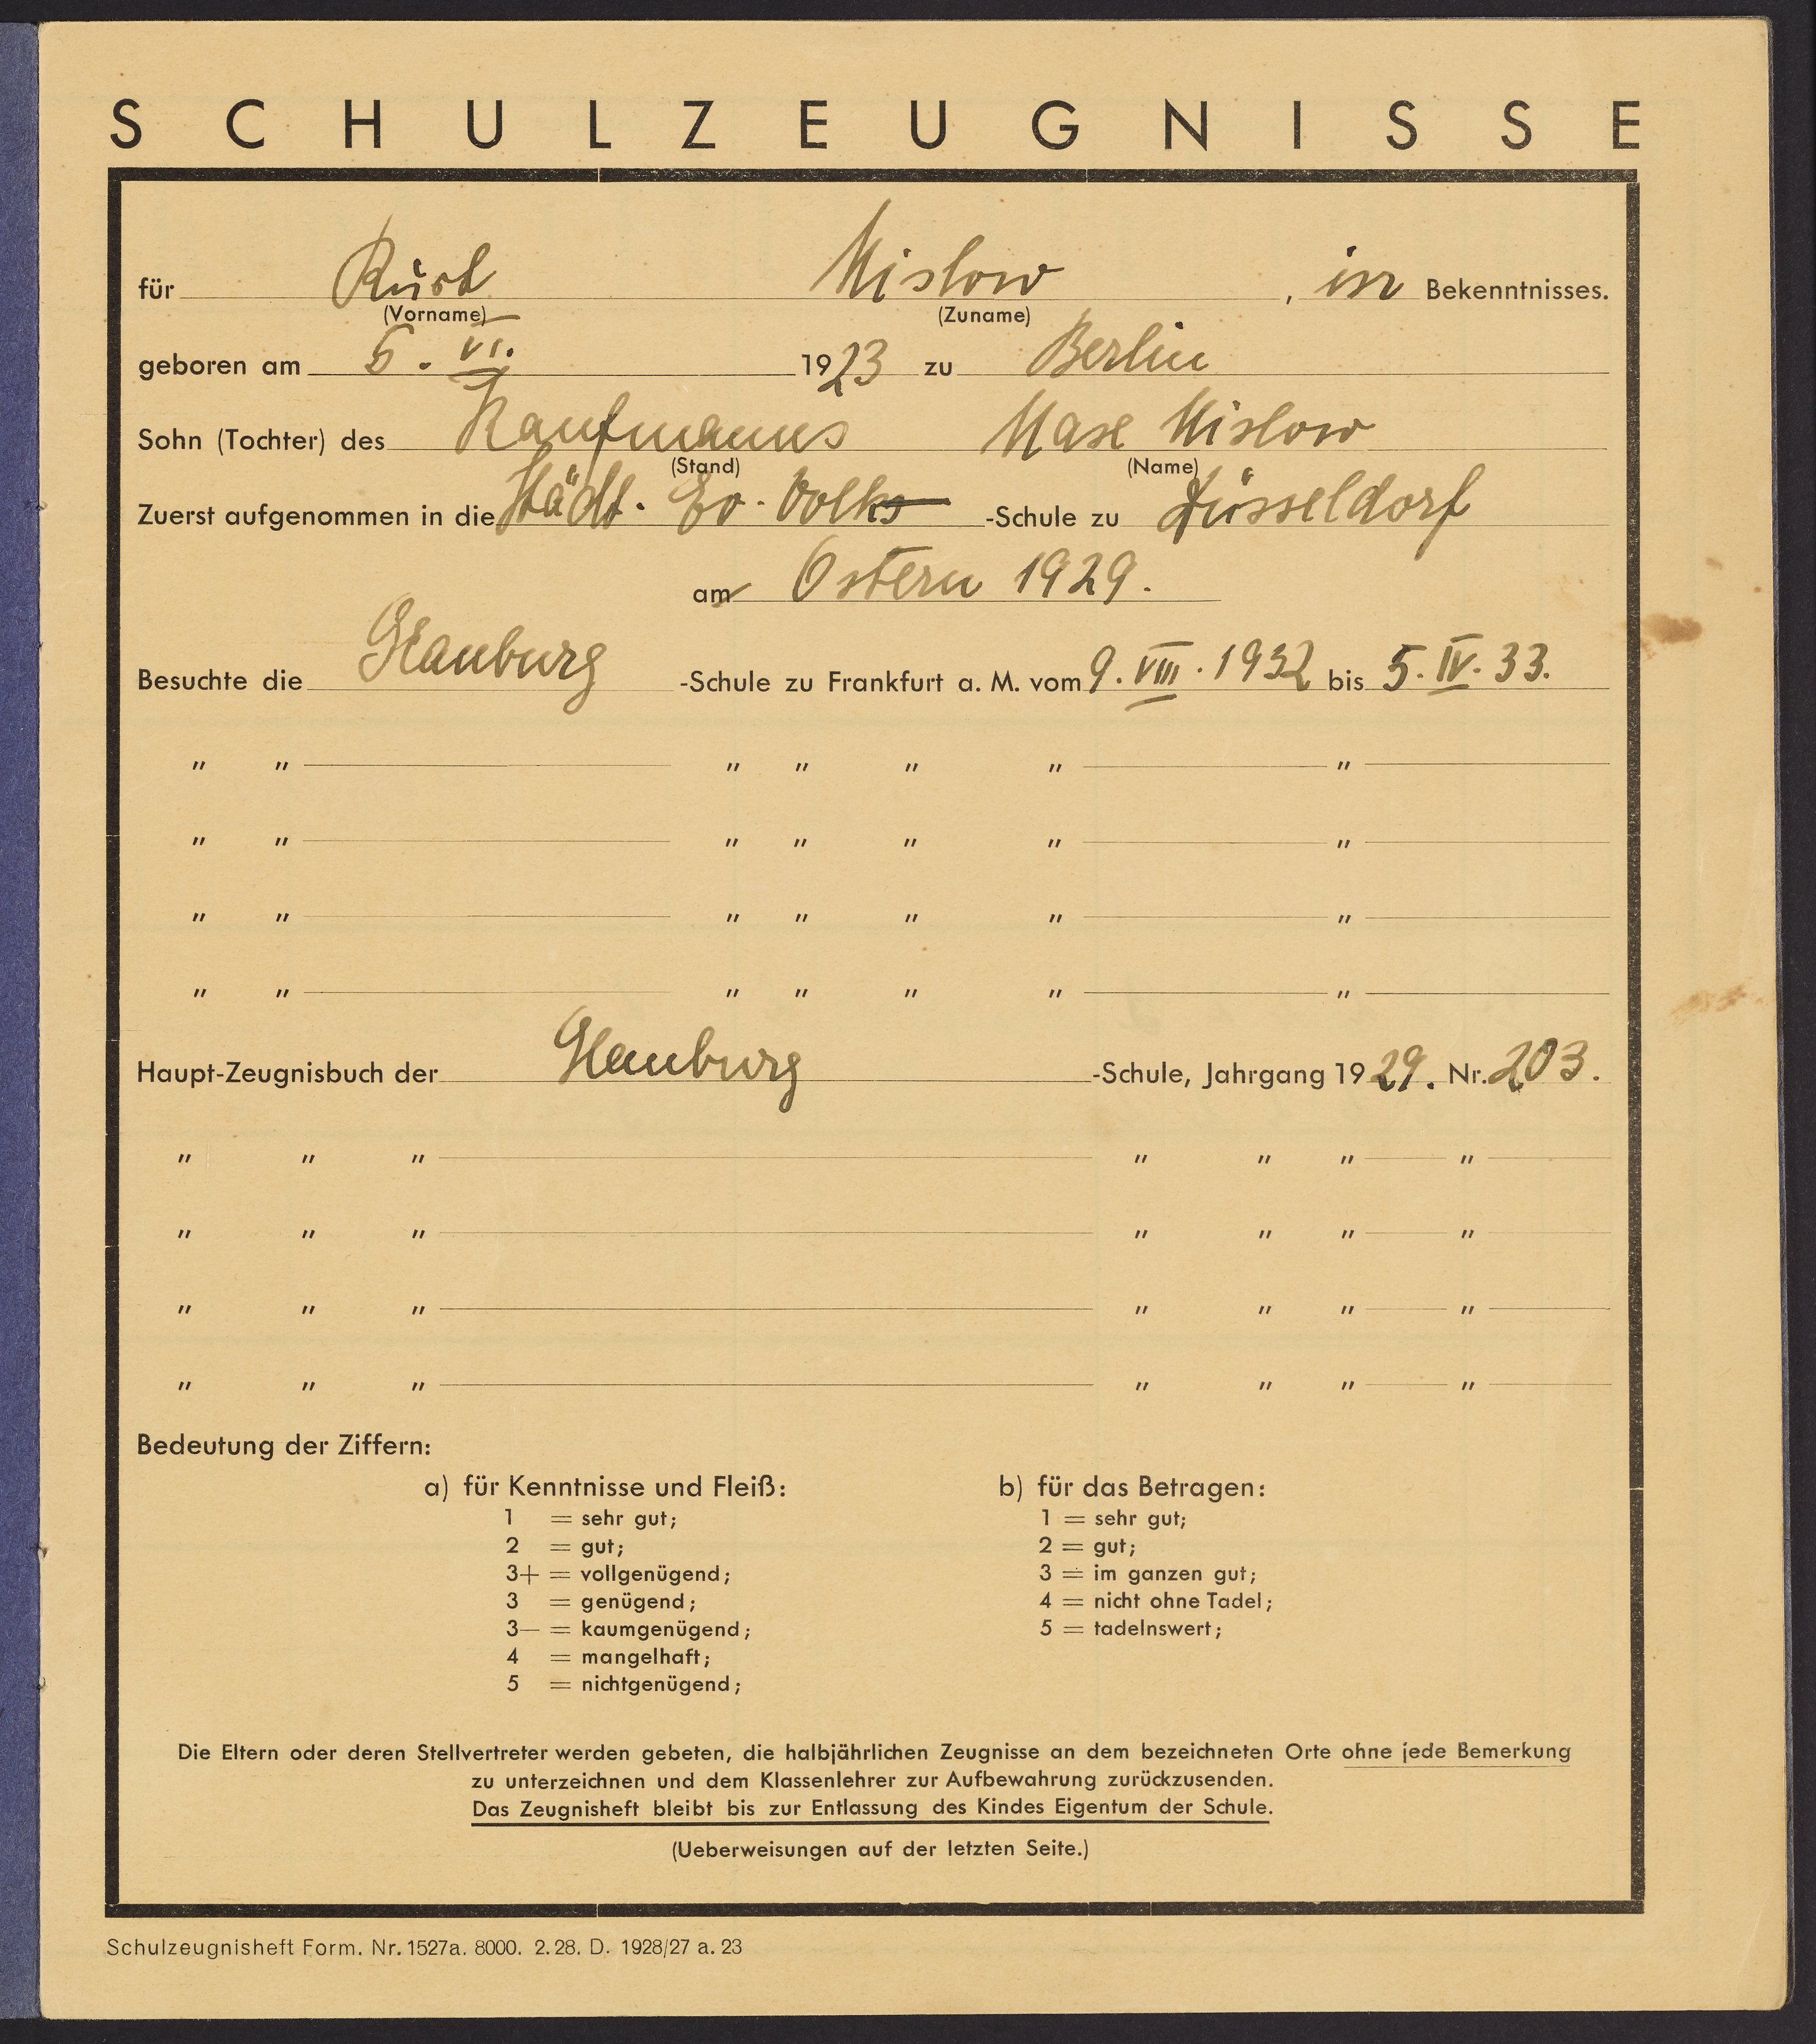 SCHULZEUGNISSE
für Kurt Mislow, isr Bekenntnisses.
(Vorname) (Zuname)
geboren am 5. VI. 1923 zu Berlin
Sohn (Tochter) des Kaufmanns Max Mislow
(Stand) (Name)
Zuerst aufgenommen in die Städt. Ev. Volks -Schule zu Düsseldorf
am Ostern 1929.
Besuchte die Glauburg -Schule zu Frankfurt a. M. vom 9. VIII. 1932 bis 5. IV. 33.
" " " " " " "
" " " " " " "
" " " " " " "
" " " " " " "
Haupt-Zeugnisbuch der Glauburg -Schule, Jahrgang 1929. Nr. 203.
" " " " " " "
" " " " " " "
" " " " " " "
" " " " " " "
Bedeutung der Ziffern:
a) für Kenntnisse und Fleiß:
1 = sehr gut;
2 = gut;
3+ = vollgenügend;
3 = genügend;
3— = kaumgenügend;
4 = mangelhaft;
5 = nichtgenügend;
b) für das Betragen:
1 = sehr gut;
2 = gut;
3 = im ganzen gut;
4 = nicht ohne Tadel;
5 = tadelnswert;
Die Eltern oder deren Stellvertreter werden gebeten, die halbjährlichen Zeugnisse an dem bezeichneten Orte ohne jede Bemerkung
zu unterzeichnen und dem Klassenlehrer zur Aufbewahrung zurückzusenden.
Das Zeugnisheft bleibt bis zur Entlassung des Kindes Eigentum der Schule.
(Ueberweisungen auf der letzten Seite.)
Schulzeugnisheft Form. Nr. 1527a. 8000. 2. 28. D. 1928/27 a. 23